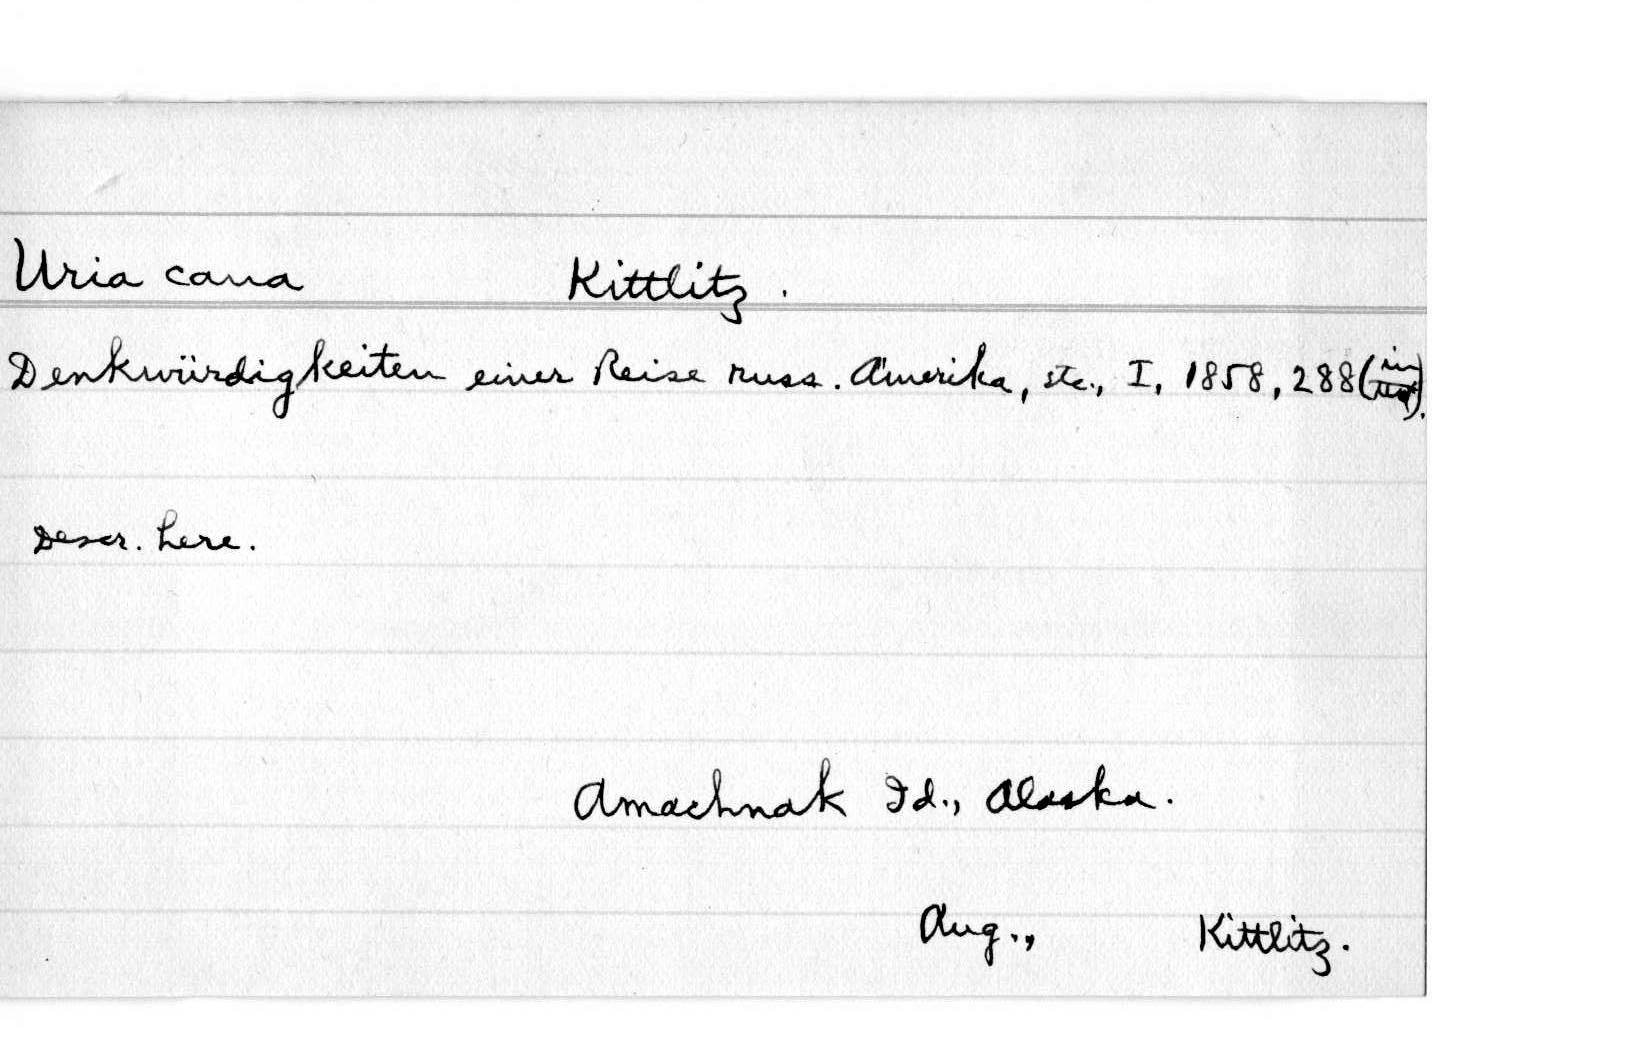 Uria cana Kittlitz.
Denkwürdigkeiten einer Reise russ. Amerika, etc., I, 1858, 288 (in text).
Descr. here.
Amachnak Id., Alaska.
Aug., Kittlitz.